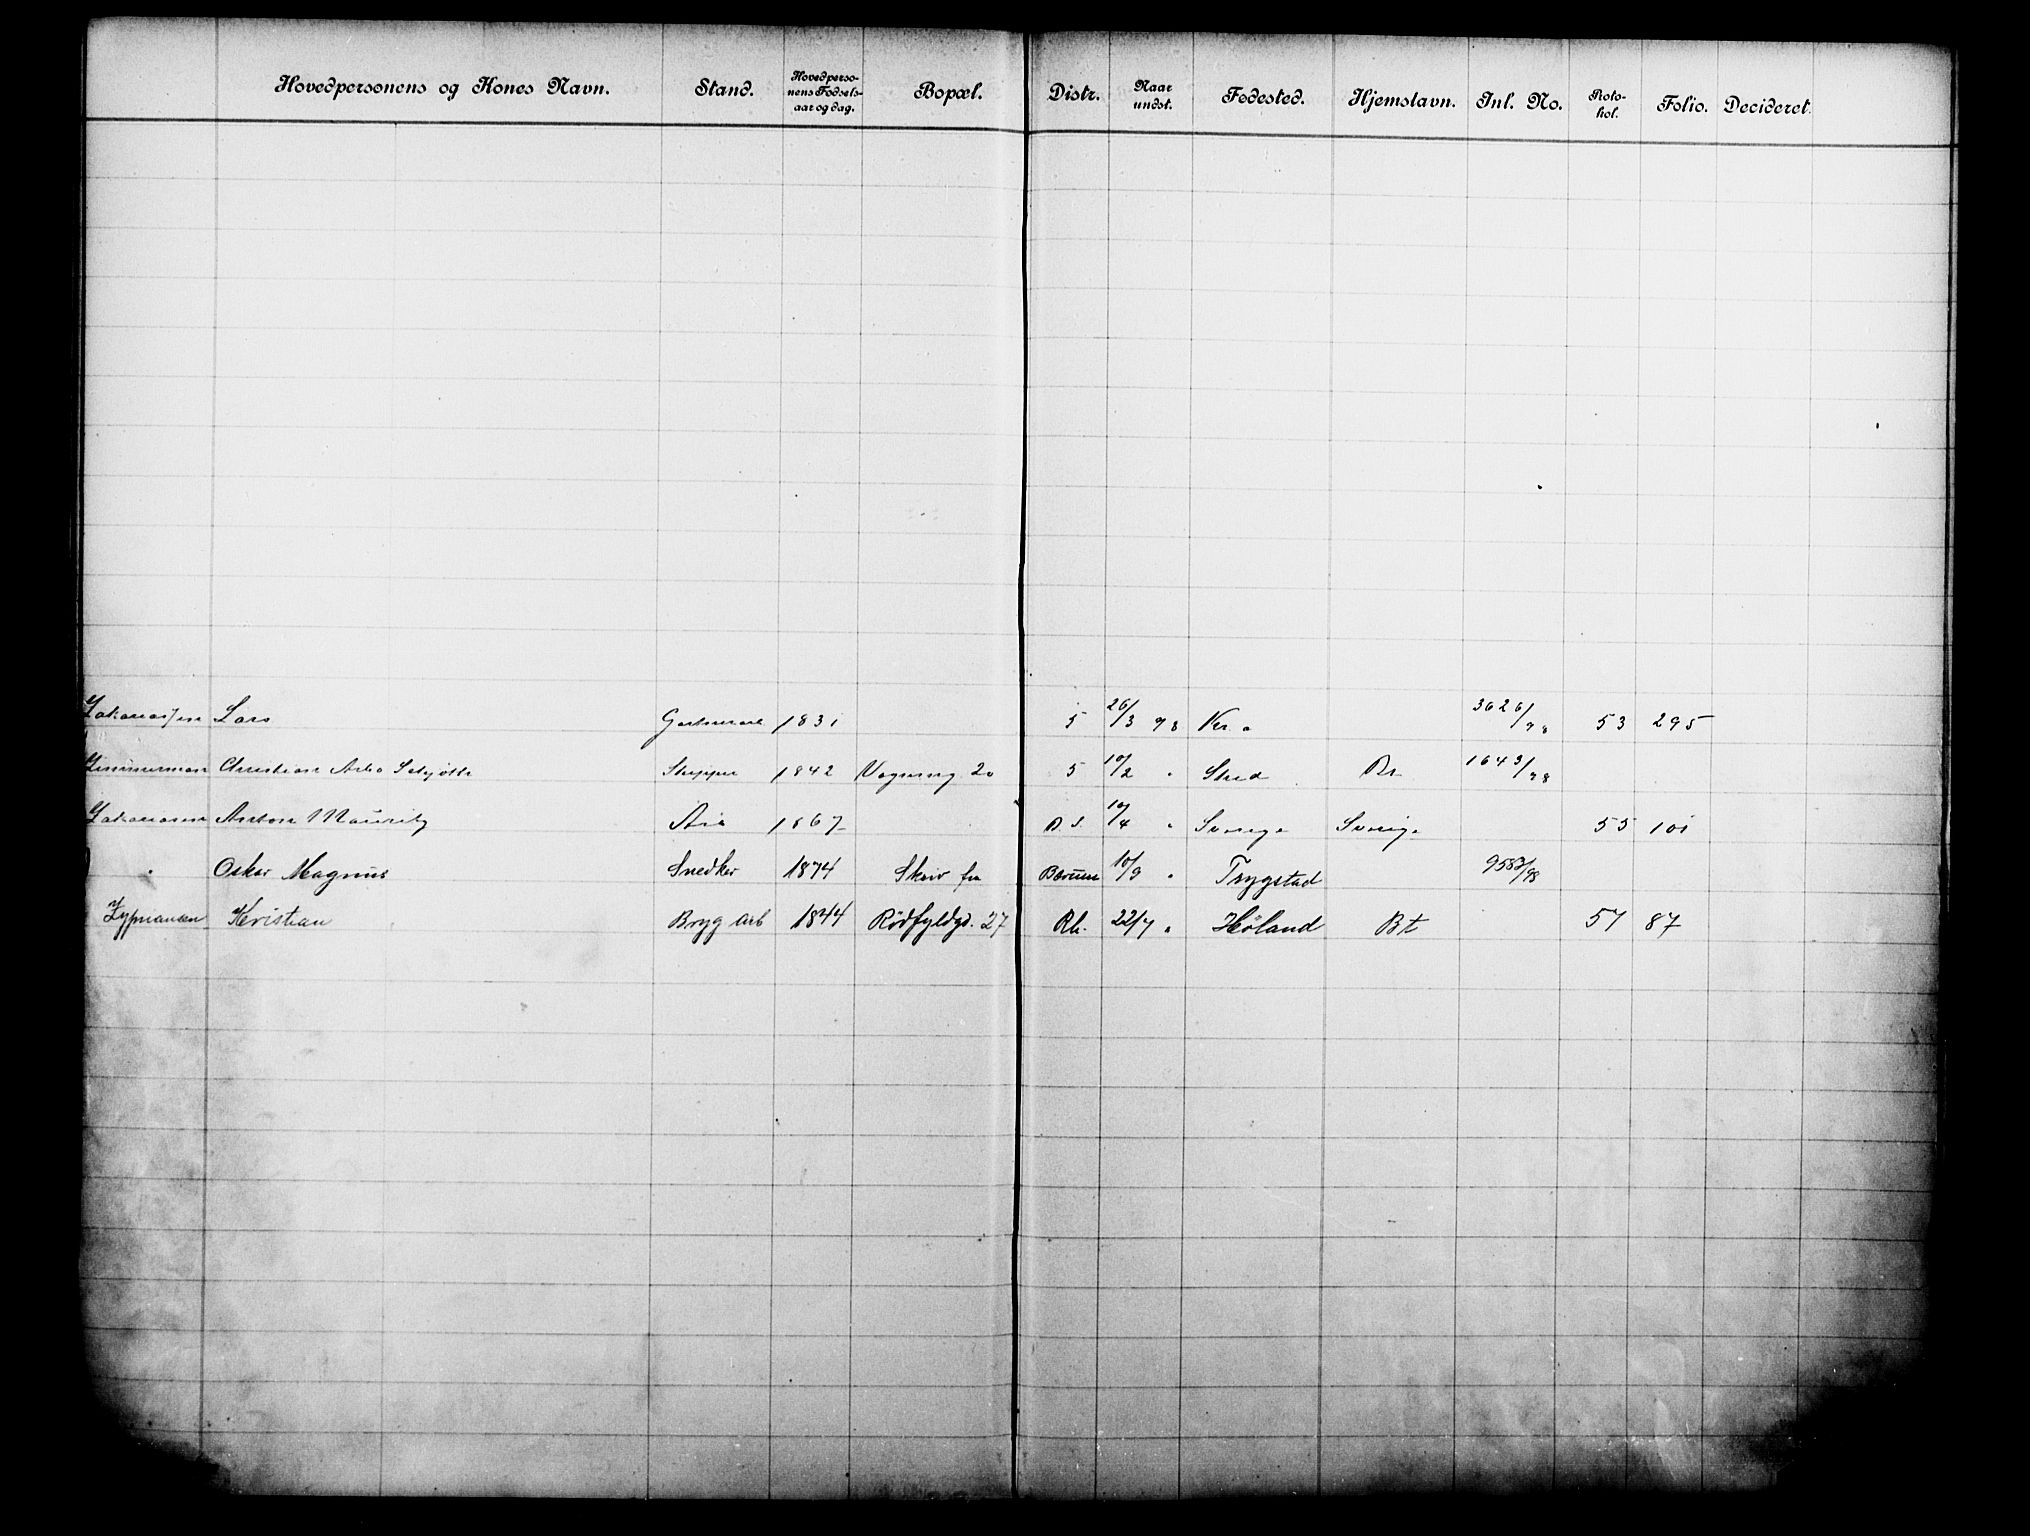 Hovedpersonens og Kones Navn. Stand. Hovedperso-nens Fødsels-aar og dag. Bopæl. Distr. Naar undst. Fødested. Hjemstavn. Inl. No. Proto-kol. Folio. Decideret.
Zakariassen Lars 1831 5 26/3 98 Kr.a 3626/98 53 295
Zimmerman Christian Arbo Schjøth Skipper 1842 Vognmg 20 5 10/2 " 1643/98
Zakariasen Anton Mauritz Arb 1867 10/4 " Sverige Sverige 55 101
" Oskar Magnus Snedker 1874 Skriv fra Bærum 10/9 " Trygstad 9583/98
Zypriansen Kristian Bryg arb 1844 Rødfyldgd. 27 Rh. 22/7 " Høland Bt 57 87